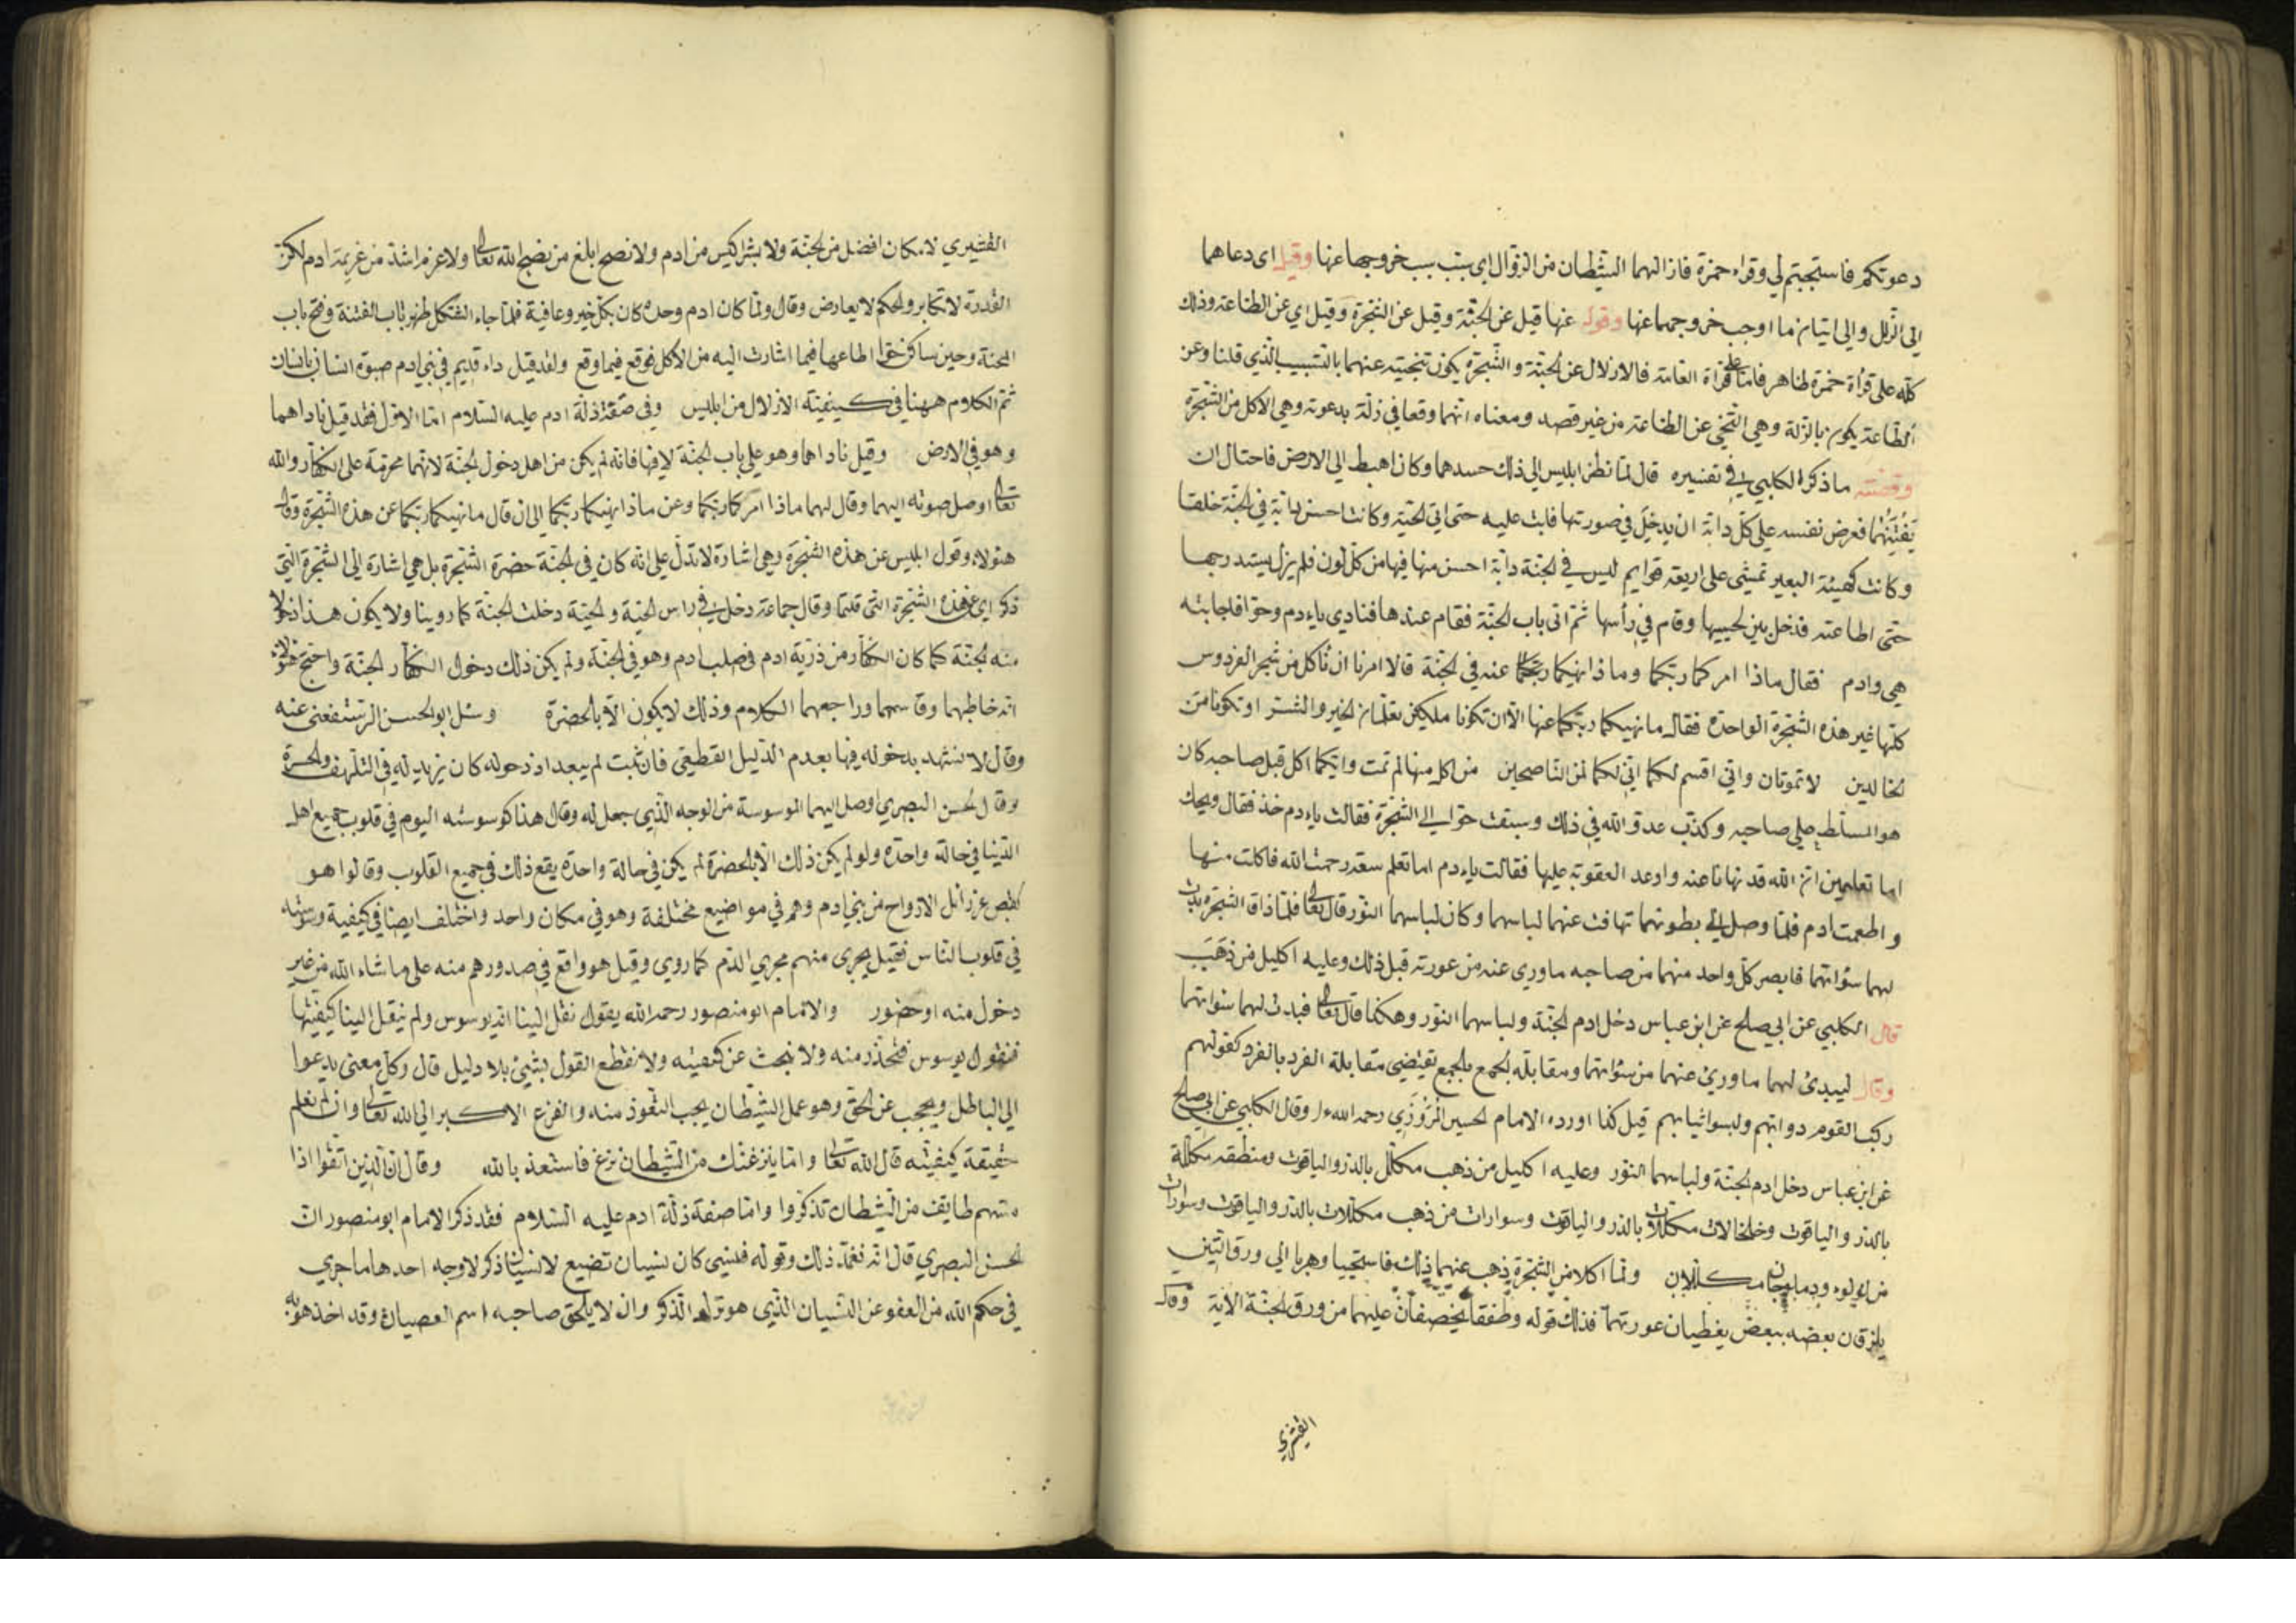 دعوتكم فاستجبتم لي وقراء حمزة فازالهما الشيطان من الزوال اي سبب خروجهما عنها وقيل اى دعاهما
الى الزلل والى اتيان ما اوجب خروجهما عنها وقوله عنها قيل عن الجنّة وقيل عن الشجرة وقيل اي عن الطاعة وذلك
كلّه على قرأة حمزة ظاهر فامّا على قراة العامّة فالازلال عن الجنّة والشّجرة يكون تنحيته عنهما بالتسبيب الّذي قلنا وعن
الطّاعة يكون بالزّلة وهي التنحّي عن الطاعة من غير قصد ومعناه انّهما وقعا في زلّة بدعوته وهي الاكل من الشجرة
وقصّته ماذكره الكلبي في تفسيره قال لمّا نظر ابليس الى ذلك حسدهما وكان اهبط الى الارض فاحتال ان
يَفْتِنَهُما فعرض نفسه على كلّ دابّة ان يدخل في صورتها فابت عليه حتى اتى الحيّة وكانت احسن دابّة في الجنّة خلقا
وكانت كهيئة البعير تمشي على اربعة قوايم ليس في الجنّة دابّة احسن منها فيها من كلّ لون فلم يزل يستدرجها
حتّى اطاعته فدخل بين لحييها وقام في رأسها ثمّ اتى باب الجنّة فقام عندها فنادى ياءدم وحوّا فاجابته
هي وادم فقال ماذا امركما ربّكما وماذا نهيكما ربّكما عنه في الجنّة قالا امرنا ان نأكل من شجر الفردوس
كلّها غير هذه الشّجرة الواحدة فقال ما نهيكما ربّكما عنها الّا ان تكونا ملكين تعلمان الخير والشّر او تكونا من
الخالدين لا تموتان وانّي اقسم لكما انّي لكما لمن النّاصحين من اكل منها لم تمت وايّكما اكل قبل صاحبه كان
هو المسلّط على صاحبه وكذّب عدوّ الله في ذلك وسبقت حوّا الى الشّجرة فقالت ياءدم خذ فقال ويحك
اما تعلمين انّ الله قد نهانا عنه واوعد العقوبة عليها فقالت ياءدم اما تعلم سعة رحمة الله فاكلت منها
واطعمت ادم فلمّا وصل الى بطونهما تهافت عنهما لباسهما وكان لباسهما النّور قال تعالى فلمّا ذاقا الشّجرة بدت
لهما سؤاتهما فابصر كلّ واحد منهما من صاحبه ما وري عنه من عورته قبل ذلك وعليه اكليل من ذهب
قال الكلبي عن ابي صلح عن ابن عباس دخل ادم الجنّة ولباسهما النور وهكذا قال تعالى فبدت لهما سؤاتهما
وقال ليبدى لهما ما وورى عنهما من سؤاتهما ومقابلة الجمع بالجمع تقتضي مقابلة الفرد بالفرد كقولهم
ركب القوم دوابّهم ولبسوا ثيابهم قيل كذا اورده الامام الحسين المَرْوَزِي رحمه الله وقال الكلبي عن ابي صلح
عن ابن عباس دخل ادم الجنّة ولباسهما النّور وعليه اكليل من ذهب مكلّل بالدر والياقوت ومنطقة مكلّلة
بالدر والياقوت وخلخالات مكلّلات بالدر والياقوت وسوارات من ذهب مكلّلات بالدر والياقوت وسوارات
من لولوء ودملجان مكلّلان ولمّا اكلا من الشّجرة ذهب عنهما ذلك فاستحييا وهربا الى ورق التّين
يلزقان بعضه ببعض يغطيان عورتهما فذلك قوله وطفقا يخصفان عليهما من ورق الجنّة الآية وقال
القشيري
القشيري لا مكان افضل من الجنّة ولا بشر اكيس من ادم ولا نصح ابلغ من نصح الله تعالى ولا عزم اشدّ من عزيمة ادم لكنّ
القدرة لا تكابر والحكم لا يعارض وقال ولمّا كان ادم وحده كان بكلّ خير وعافية فلمّا جاء الشكل ظهر باب الفتنة وفتح باب
المحنة وحين ساكن حوّا اطاعها فيما اشارت اليه من الاكل فوقع فيما وقع ولقد قيل داء قديم في بني ادم صبوة انسان بانسان
ثمّ الكلام ههنا في كيفيّة الازلال من ابليس وفي صفة زلّة ادم عليه السّلام امّا الاوّل فقد قيل ناداهما
وهو في الارض وقيل ناداهما وهو على باب الجنّة لا فيها فانّه لم يكن من اهل دخول الجنّة لانّهما محرّمة على الكفّار والله
تعالى اوصل صوته اليهما وقال لهما ماذا امركما ربّكما وعن ماذا نهيكما ربّكما الى ان قال ما نهيكما ربّكما عن هذه الشّجرة وقال
هؤلاء وقول ابليس عن هذه الشّجرة وهي اشارة لا تدلّ على انّه كان في الجنّة حضرة الشّجرة بل هي اشارة الى الشّجرة الّتي
ذكر اي عن هذه الشّجرة الّتي قلتما وقال جماعة دخل في راس الحيّة والحيّة دخلت الجنّة كما روينا ولا يكون هذا دخولا
منه الجنّة كما كان الكفّار من ذرّية ادم في صلب ادم وهو في الجنّة ولم يكن ذلك دخول الكفّار الجنّة واحتجّ هؤلاء
انّه خاطبهما وقاسمهما وراجعهما الكلام وذلك لا يكون الّا بالحضرة وسئل ابو الحسن الرستفغنى عنه
وقال لا نشهد بدخوله فيها بعدم الدّليل القطعيّ فان ثبت لم يبعد اذ دخوله كان يزيد له في التلهّف والحسرة
وقال الحسن البصري اوصل اليهما الوسوسة من الوجه الّذي جعل له وقال هذا كوسوسته اليوم في قلوب جميع اهل
الدّنيا في حالة واحدة ولو لم يكن ذلك الّا بالحضرة لم يكن في حالة واحدة يقع ذلك في جميع القلوب وقالوا هو
كقبض عزرائل الارواح من بني ادم وهم في مواضيع مختلفة وهو في مكان واحد واختلف ايضا في كيفية وسوسته
في قلوب النّاس فقيل يجرى منهم مجرى الدّم كما روي وقيل هو واقع في صدورهم منه على ما شاء الله من غير
دخول منه او حضور والامام ابو منصور رحمه الله يقول نقل الينا انه يوسوس ولم ينقل الينا كيفيّتها
فنقول يوسوس فنحذر منه ولا نبحث عن كيفيته ولا نقطع القول بشئ بلا دليل قال وكلّ معنى يدعوا
الى الباطل ويحجب عن الحق وهو عمل الشّيطان يجب التّعوّذ منه والفزع الاكبر الى الله تعالى وان لم نعلم
حقيقة كيفيّته قال الله تعالى وامّا ينزغنّك من الشّيطان نزغ فاستعذ بالله وقال انّ الّذين اتّقوا اذا
مسّهم طايف من الشّيطان تذكّروا وامّا صفة زلّة ادم عليه السّلام فقد ذكر الامام ابو منصور انّ
الحسن البصري قال انّه تعمّد ذلك وقوله فنسى كان نسيان تضيع لا نسيان ذكر لاوجه احدها ما جرى
في حكم الله من العفو عن النّسيان الّذي هو ترك الذّكر وان لا يلحق صاحبه اسم العصيان وقد اخذ هو به